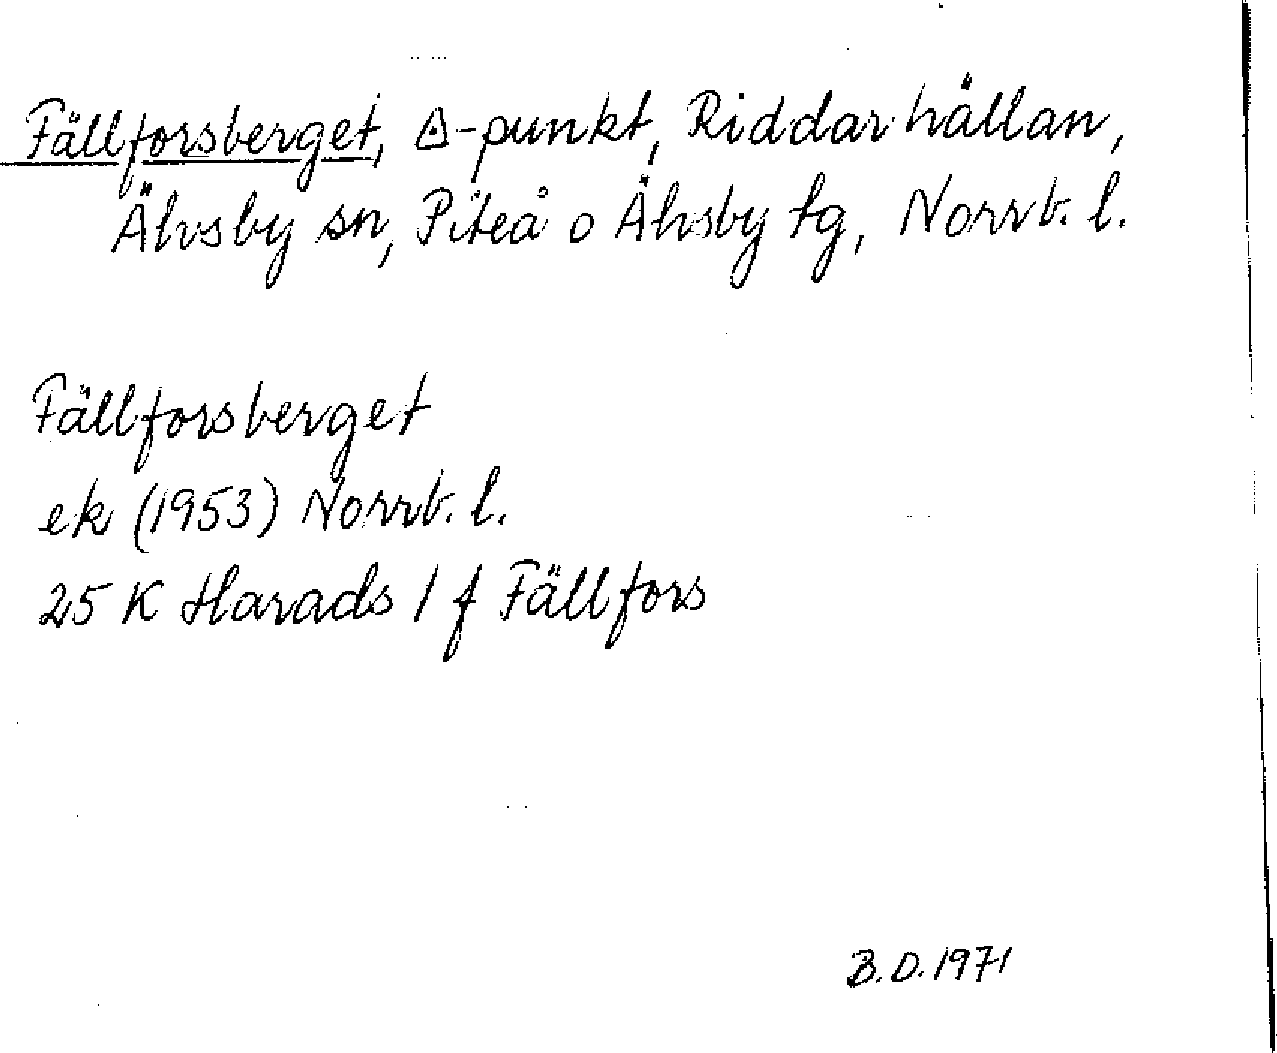 Fällforsberget, △-punkt, Riddarhällan,
Älvsby sn, Piteå o Älvsby tg, Norrb. l.
Fällforsberget
ek (1953) Norrb. l.
25 K Harads 1 f Fällfors
B.D. 1971